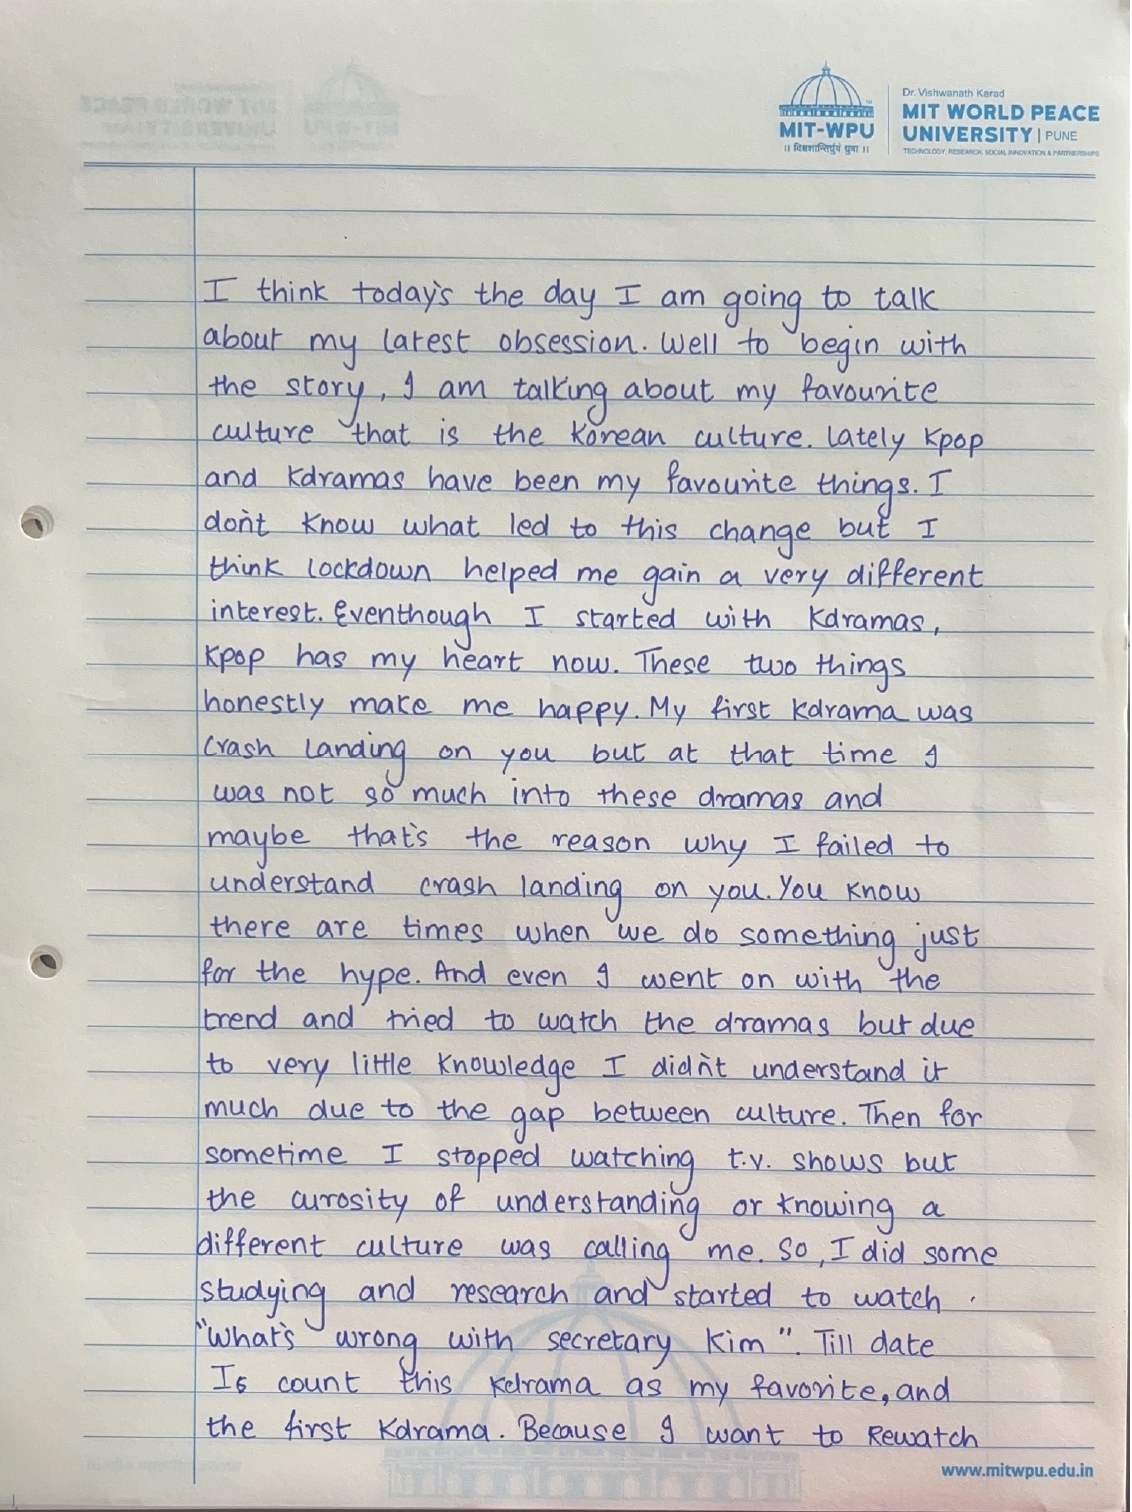 Dr. Vishwanath Karad
MIT WORLD PEACE
UNIVERSITY | PUNE
TECHNOLOGY, RESEARCH, SOCIAL INNOVATION & PARTNERSHIPS
MIT-WPU
॥ विश्वशान्तिर्ध्रुवं ध्रुवा ॥
I think today's the day I am going to talk
about my latest obsession. Well to begin with
the story, I am talking about my favourite
culture that is the Korean culture. Lately Kpop
and Kdramas have been my favourite things. I
don't know what led to this change but I
think lockdown helped me gain a very different
interest. Eventhough I started with Kdramas,
Kpop has my heart now. These two things
honestly make me happy. My first Kdrama was
Crash landing on you but at that time I
was not so much into these dramas and
maybe that's the reason why I failed to
understand crash landing on you. You know
there are times when we do something just
for the hype. And even I went on with the
trend and tried to watch the dramas but due
to very little knowledge I didn't understand it
much due to the gap between culture. Then for
sometime I stopped watching t.v. shows but
the curosity of understanding or knowing a
different culture was calling me. So, I did some
studying and research and started to watch.
"What's wrong with secretary Kim". Till date
I count this Kdrama as my favorite, and
the first Kdrama. Because I want to Rewatch
www.mitwpu.edu.in